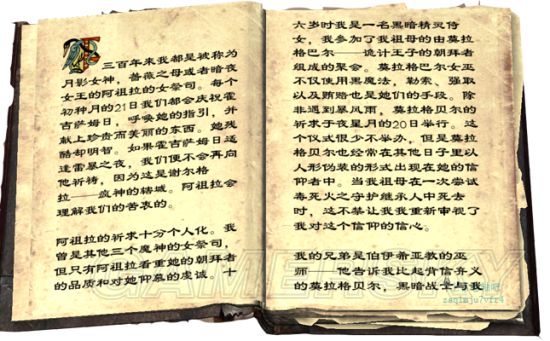 三百年来我都是被称为
月影女神，蔷薇之母或者暗夜
女王的阿祖拉的女祭司。每个
初种月的21日我们都会庆祝霍
吉萨姆日，呼唤她的指引，并
献上珍贵而美丽的东西。她残
酷却明智。如果霍吉萨姆日适
逢雷暴之夜，我们便不会再向
他祈祷，因为这是谢尔格
拉——疯神的辖域。阿祖拉会
理解我们的苦衷的。
阿祖拉的祈求十分个人化。我
曾是其他三个魔神的女祭司，
但只有阿祖拉看重她的朝拜者
的品质和对她仰慕的虔诚。十
六岁时我是一名黑暗精灵侍
女，我参加了我祖母的由莫拉
格巴尔——诡计王子的朝拜者
组成的聚会。莫拉格巴尔女巫
不仅使用黑魔法，勒索、强取
以及贿赂也是她们的手段。除
非遇到暴风雨，莫拉格贝尔的
祈求于夜星月的20日举行。这
个仪式很少不举办，但是莫拉
格贝尔也经常在其他日子里以
人形伪装的形式出现在她的信
仰者中。当我祖母在一次尝试
毒死火之守护继承人中死去
时，这不禁让我我重新审视了
我对这个信仰的信心。
我的兄弟是伯伊希亚教的巫
师——他告诉我比起背信弃义
的莫拉格贝尔，黑暗战士与我
GAMERSKY
zaqimju7vfr4